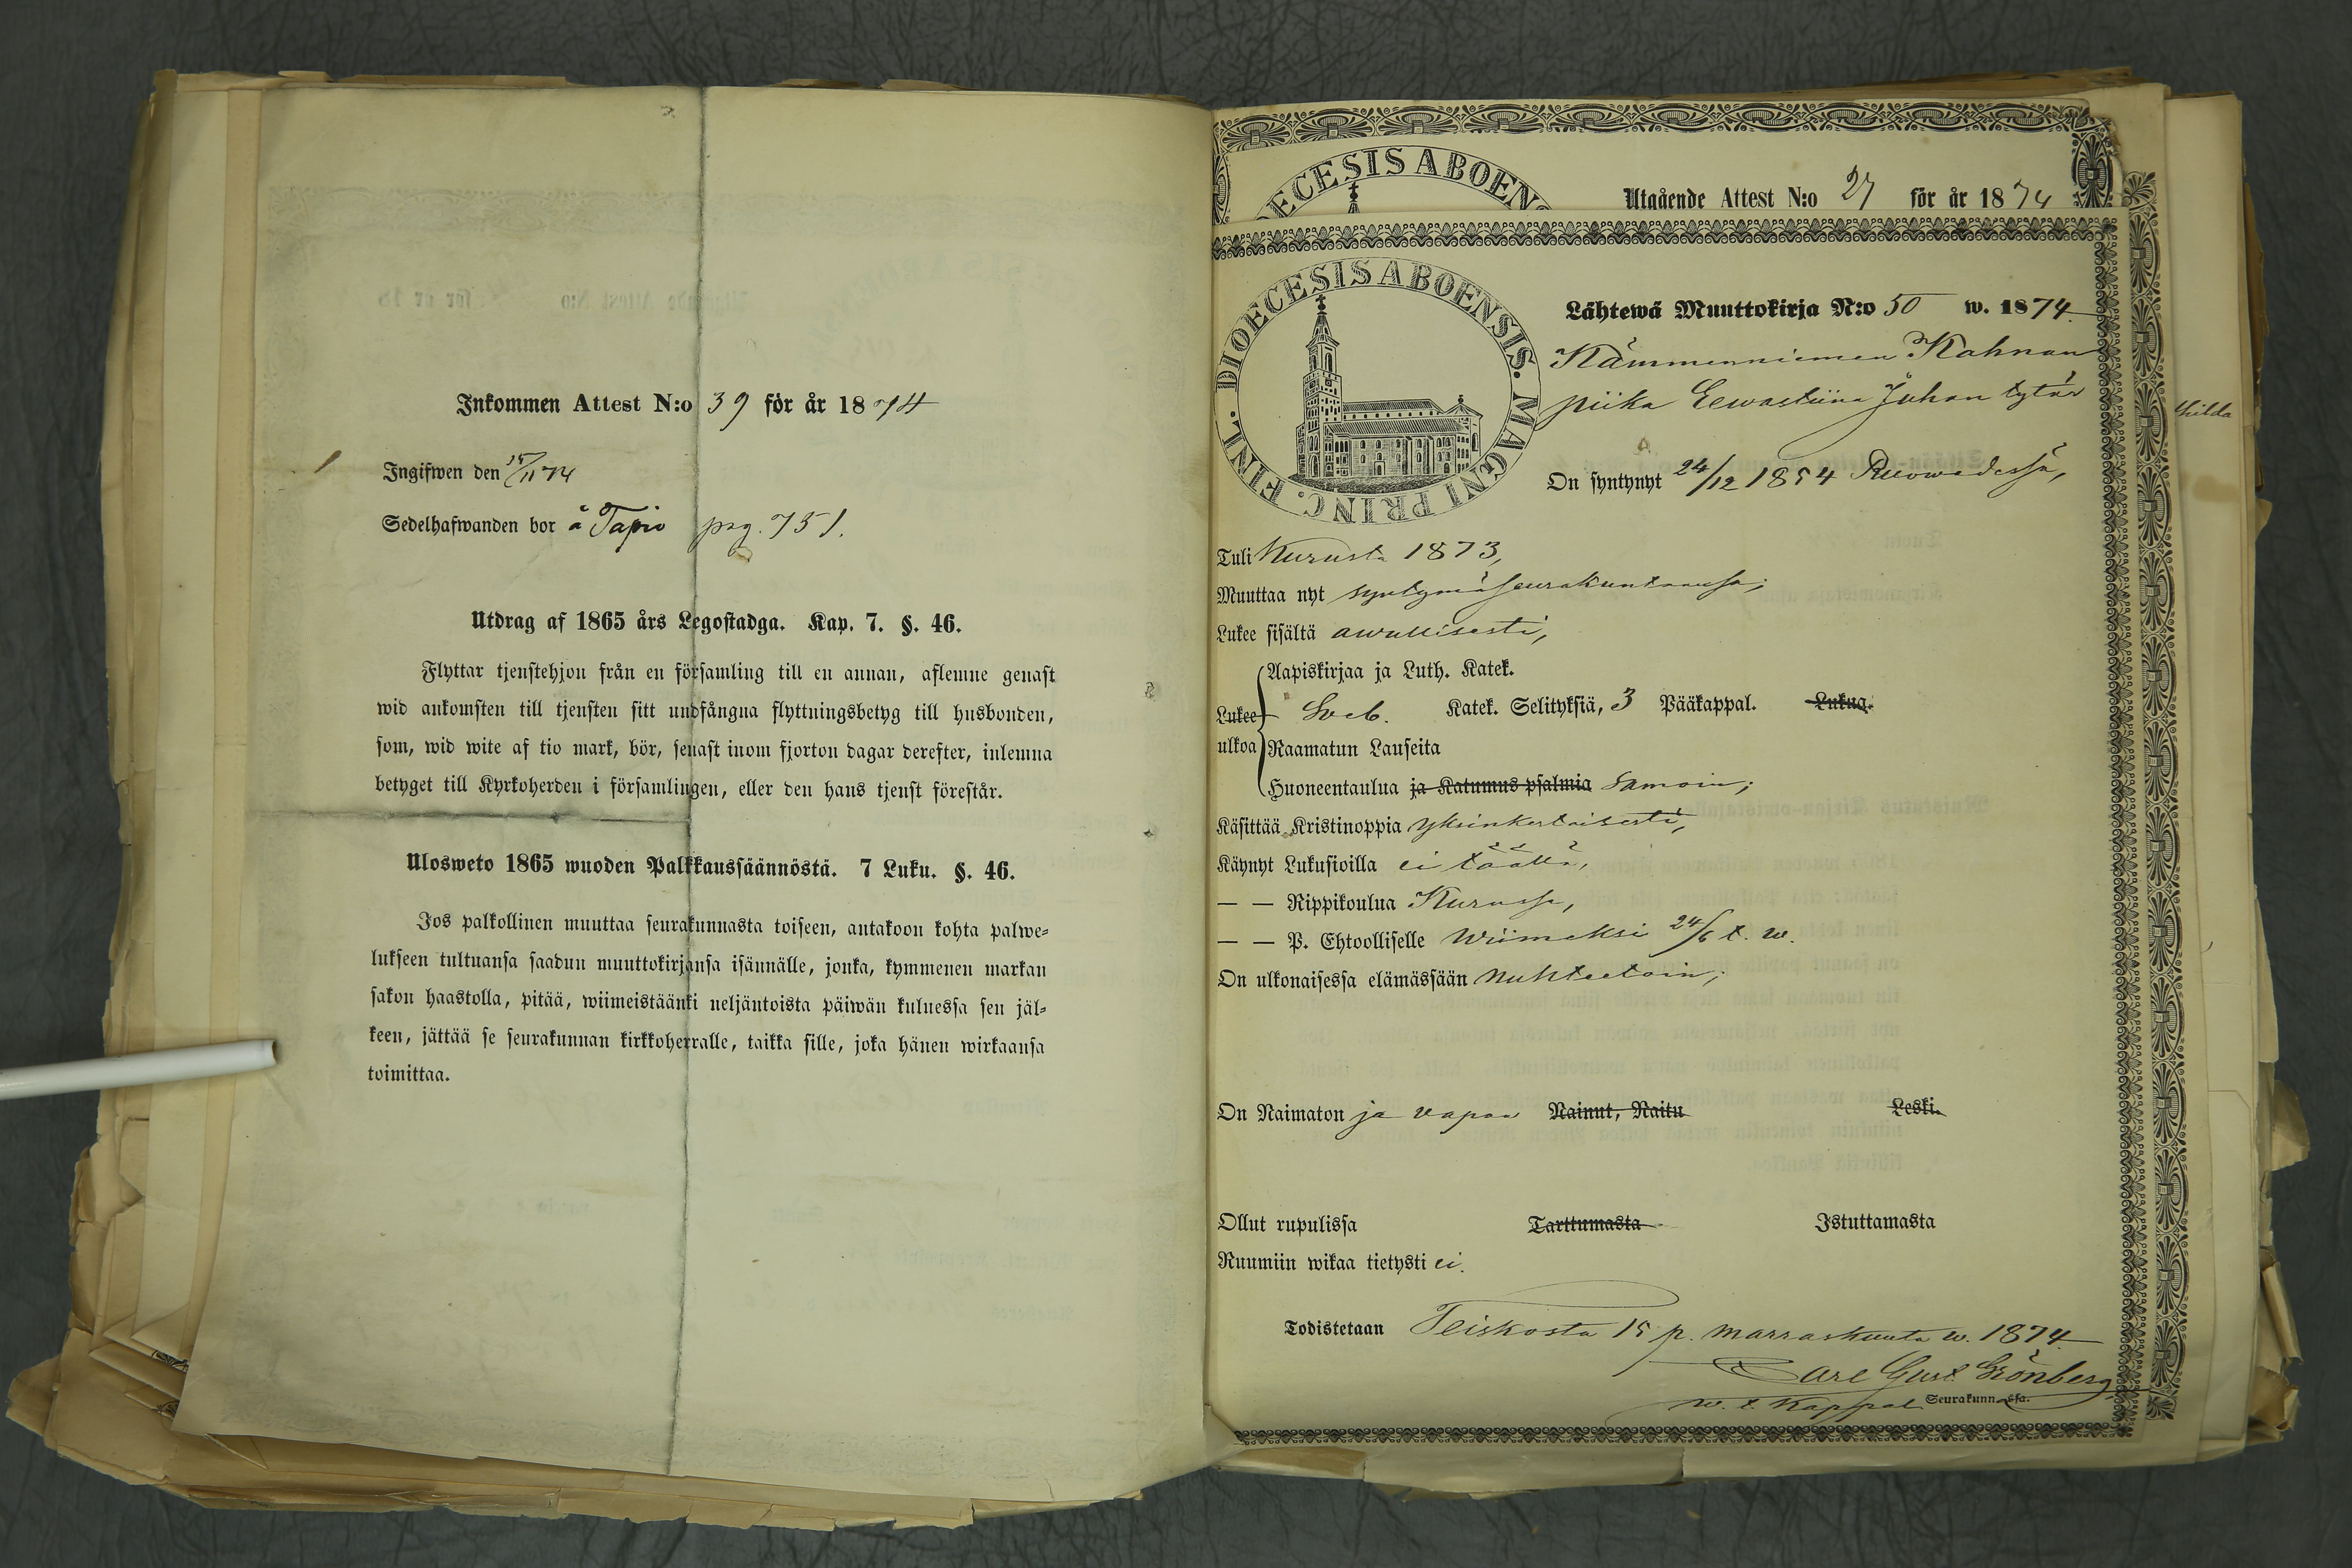 Inkommen Attest N:o 39 för år 1874
Ingifwen den 15/11 74
Sedelhafwanden bor å Tapio pag. 751.
Utdrag af 1865 års Legostadga. Kap. 7. §. 46.
Flyttar tjenstehjon från en församling till en annan, aflemne genast
wid ankomsten till tjensten sitt undfångna flyttningsbetyg till husbonden,
som, wid wite af tio mark, bör, senast inom fjorton dagar derefter, inlemna
betyget till Kyrkoherden i församlingen, eller den hans tjenst förestår.
Ulosweto 1865 wuoden Palkkaussäännöstä. 7 Luku. §. 46.
Jos palkollinen muuttaa seurakunnasta toiseen, antakoon kohta palwe-
lukseen tultuansa saadun muuttokirjansa isännälle, jonka, kymmenen markan
sakon haastolla, pitää, wiimeistäänki neljäntoista päiwän kuluessa sen jäl-
keen, jättää se seurakunnan kirkkoherralle, taikka sille, joka hänen wirkaansa
toimittaa.
DIOECESIS ABOEN
Utgående Attest N:o 27 för år 1874
FINL. DIOECESIS ABOENSIS. MAGNI PRINC.
Lähtewä Muuttokirja N:o 50 w. 1874
Kämmenniemen Kahnan
piika Eewastiina Juhon tytär
On syntynyt 24/12 1854 Ruowedessä,
Tuli Kurusta 1873,
Muuttaa nyt syntymäseurakuntaansa;
Lukee sisältä awullisesti,
Aapiskirjaa ja Luth. Katek.
Lukee Sveb. Katek. Selityksiä, 3 Pääkappal. Lukua.
ulkoa Raamatun Lauseita
Huoneentaulua ja Katumus psalmia samoin;
Käsittää Kristinoppia yksinkertaisesti,
Käynyt Lukusioilla ei täällä,
— — Rippikoulua Kurussa,
— — P. Ehtoolliselle wiimeksi 24/6 t. w.
On ulkonaisessa elämässään nuhteetoin;
On Naimaton ja vapaa Nainut, Naitu Leski.
Ollut rupulissa Tarttumasta Istuttamasta
Ruumiin wikaa tietysti ei.
Todistetaan Teiskosta 15 p. marraskuuta w. 1874
Carl Gust. Grönberg
w. t. Kappal. Seurakunn ssa.
hilda